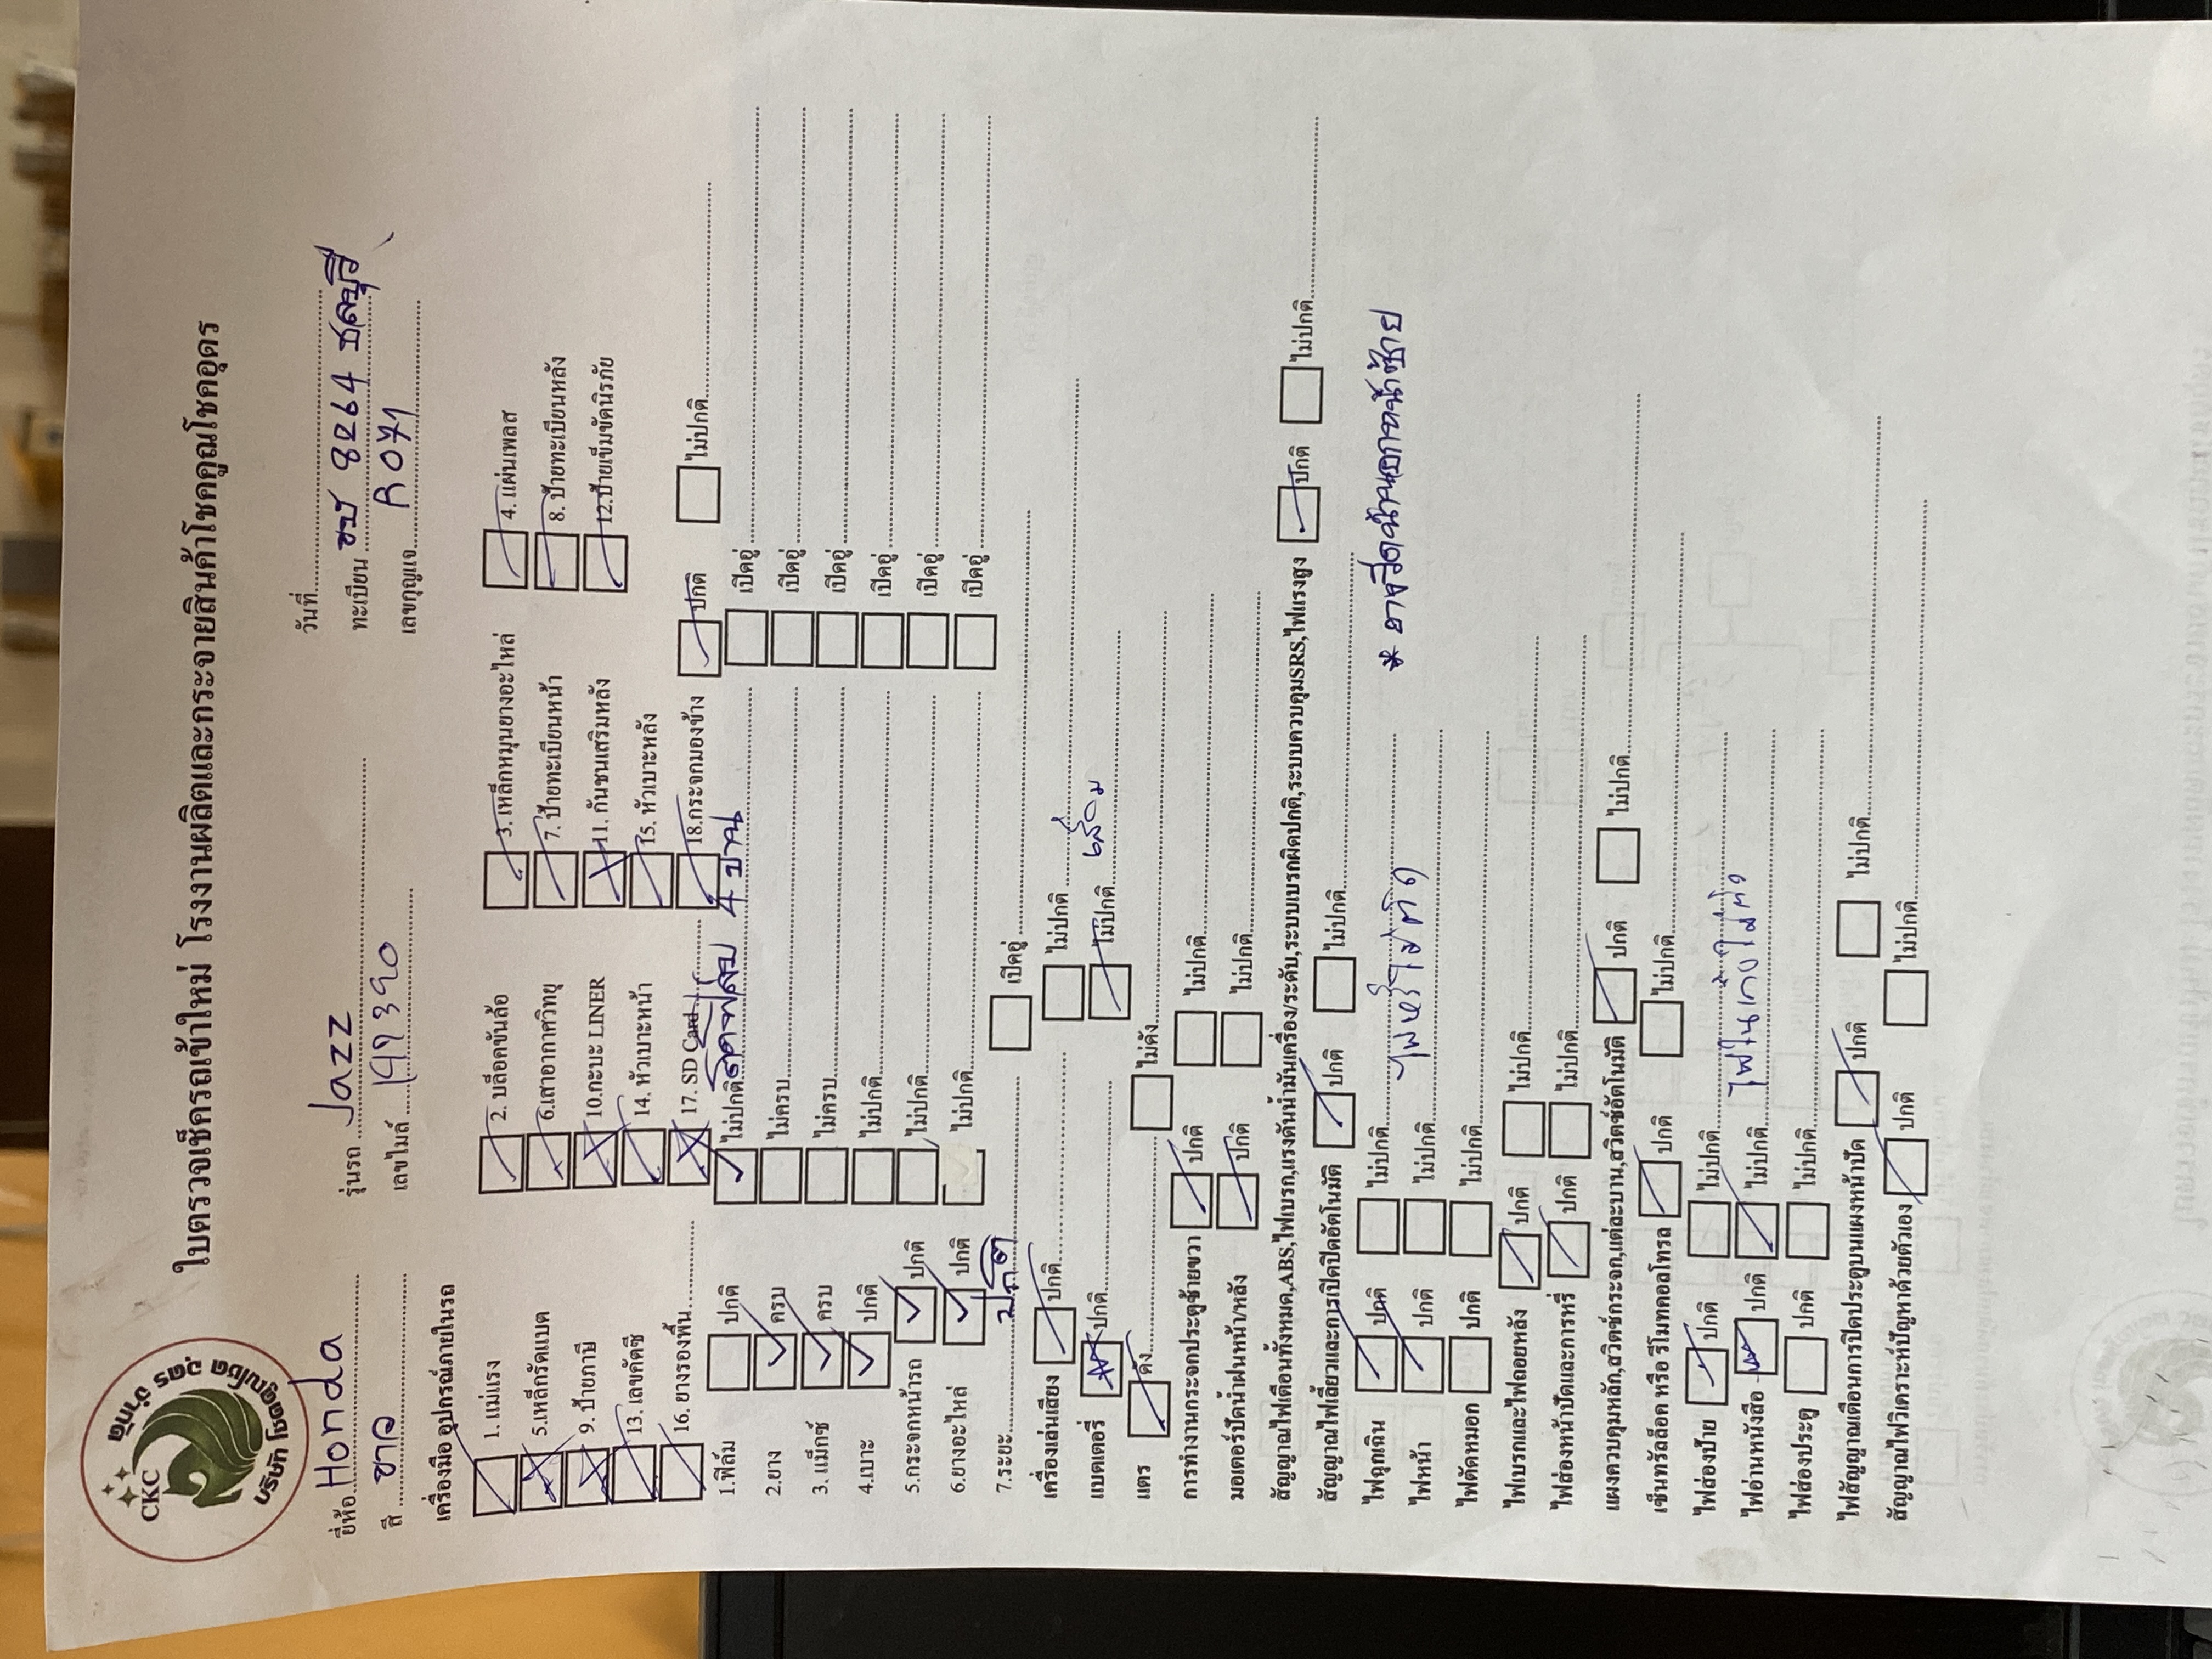 CKC
บริษัท โชคคูณโชค อุดร จำกัด
ใบตรวจเช็ครถเข้าใหม่ โรงงานผลิตและกระจายสินค้าโชคคูณโชคอุดร
วันที่
ยี่ห้อ Honda รุ่นรถ Jazz ทะเบียน ขบ 8264 ชลบุรี
สี ขาว เลขไมล์ 147390 เลขกุญแจ R071
เครื่องมือ อุปกรณ์ภายในรถ
1. แม่แรง 2. บล็อคขันล้อ 3. เหล็กหมุนยางอะไหล่ 4. แผ่นเพลส
5.เหล็กรัดแบต 6.เสาอากาศวิทยุ 7. ป้ายทะเบียนหน้า 8. ป้ายทะเบียนหลัง
9. ป้ายภาษี 10.กะบะ LINER 11. กันชนเสริมหลัง 12.ป้ายเข็มขัดนิรภัย
13. เลขคัตซี 14. หัวเบาะหน้า 15. หัวเบาะหลัง
16. ยางรองพื้น 17. SD Card 18.กระจกมองข้าง ปกติ ไม่ปกติ
1.ฟิล์ม ปกติ ไม่ปกติ ติดฟิล์ม 4 บาน เปิดอู่
2.ยาง ครบ ไม่ครบ เปิดอู่
3. แม็กซ์ ครบ ไม่ครบ เปิดอู่
4.เบาะ ปกติ ไม่ปกติ เปิดอู่
5.กระจกหน้ารถ ปกติ ไม่ปกติ เปิดอู่
6.ยางอะไหล่ ปกติ ไม่ปกติ เปิดอู่
7.ระยะ ปกติ เปิดอู่
เครื่องเล่นเสียง ปกติ ไม่ปกติ
แบตเตอรี่ ปกติ ไม่ปกติ เสื่อม
แตร ดัง ไม่ดัง
การทำงานกระจกประตูซ้ายขวา ปกติ ไม่ปกติ
มอเตอร์ปัดน้ำฝนหน้า/หลัง ปกติ ไม่ปกติ
สัญญาณไฟเตือนทั้งหมด,ABS,ไฟเบรก,แรงดันน้ำมันเครื่อง/ระดับ,ระบบเบรกผิดปกติ,ระบบควบคุมSRS,ไฟแรงสูง ปกติ ไม่ปกติ
สัญญาณไฟเลี้ยวและการเปิดปิดอัตโนมัติ ปกติ ไม่ปกติ
ไฟฉุกเฉิน ปกติ ไม่ปกติ
ไฟหน้า ปกติ ไม่ปกติ ไฟหรี่ไม่ติด
ไฟตัดหมอก ปกติ ไม่ปกติ
ไฟเบรกและไฟถอยหลัง ปกติ ไม่ปกติ
ไฟส่องหน้าปัดและการหรี่ ปกติ ไม่ปกติ
แผงควบคุมหลัก,สวิตช์กระจก,แต่ละบาน,สวิตช์อัตโนมัติ ปกติ ไม่ปกติ
เซ็นทรัลล็อค หรือ รีโมทคอลโทรล ปกติ ไม่ปกติ
ไฟส่องป้าย ปกติ ไม่ปกติ
ไฟอ่านหนังสือ ปกติ ไม่ปกติ ไฟในเก๋งไม่ติด
ไฟส่องประตู ปกติ ไม่ปกติ
ไฟสัญญาณเตือนการปิดประตูบนแผงหน้าปัด ปกติ ไม่ปกติ
สัญญาณไฟวิเคราะห์ปัญหาด้วยตัวเอง ปกติ ไม่ปกติ